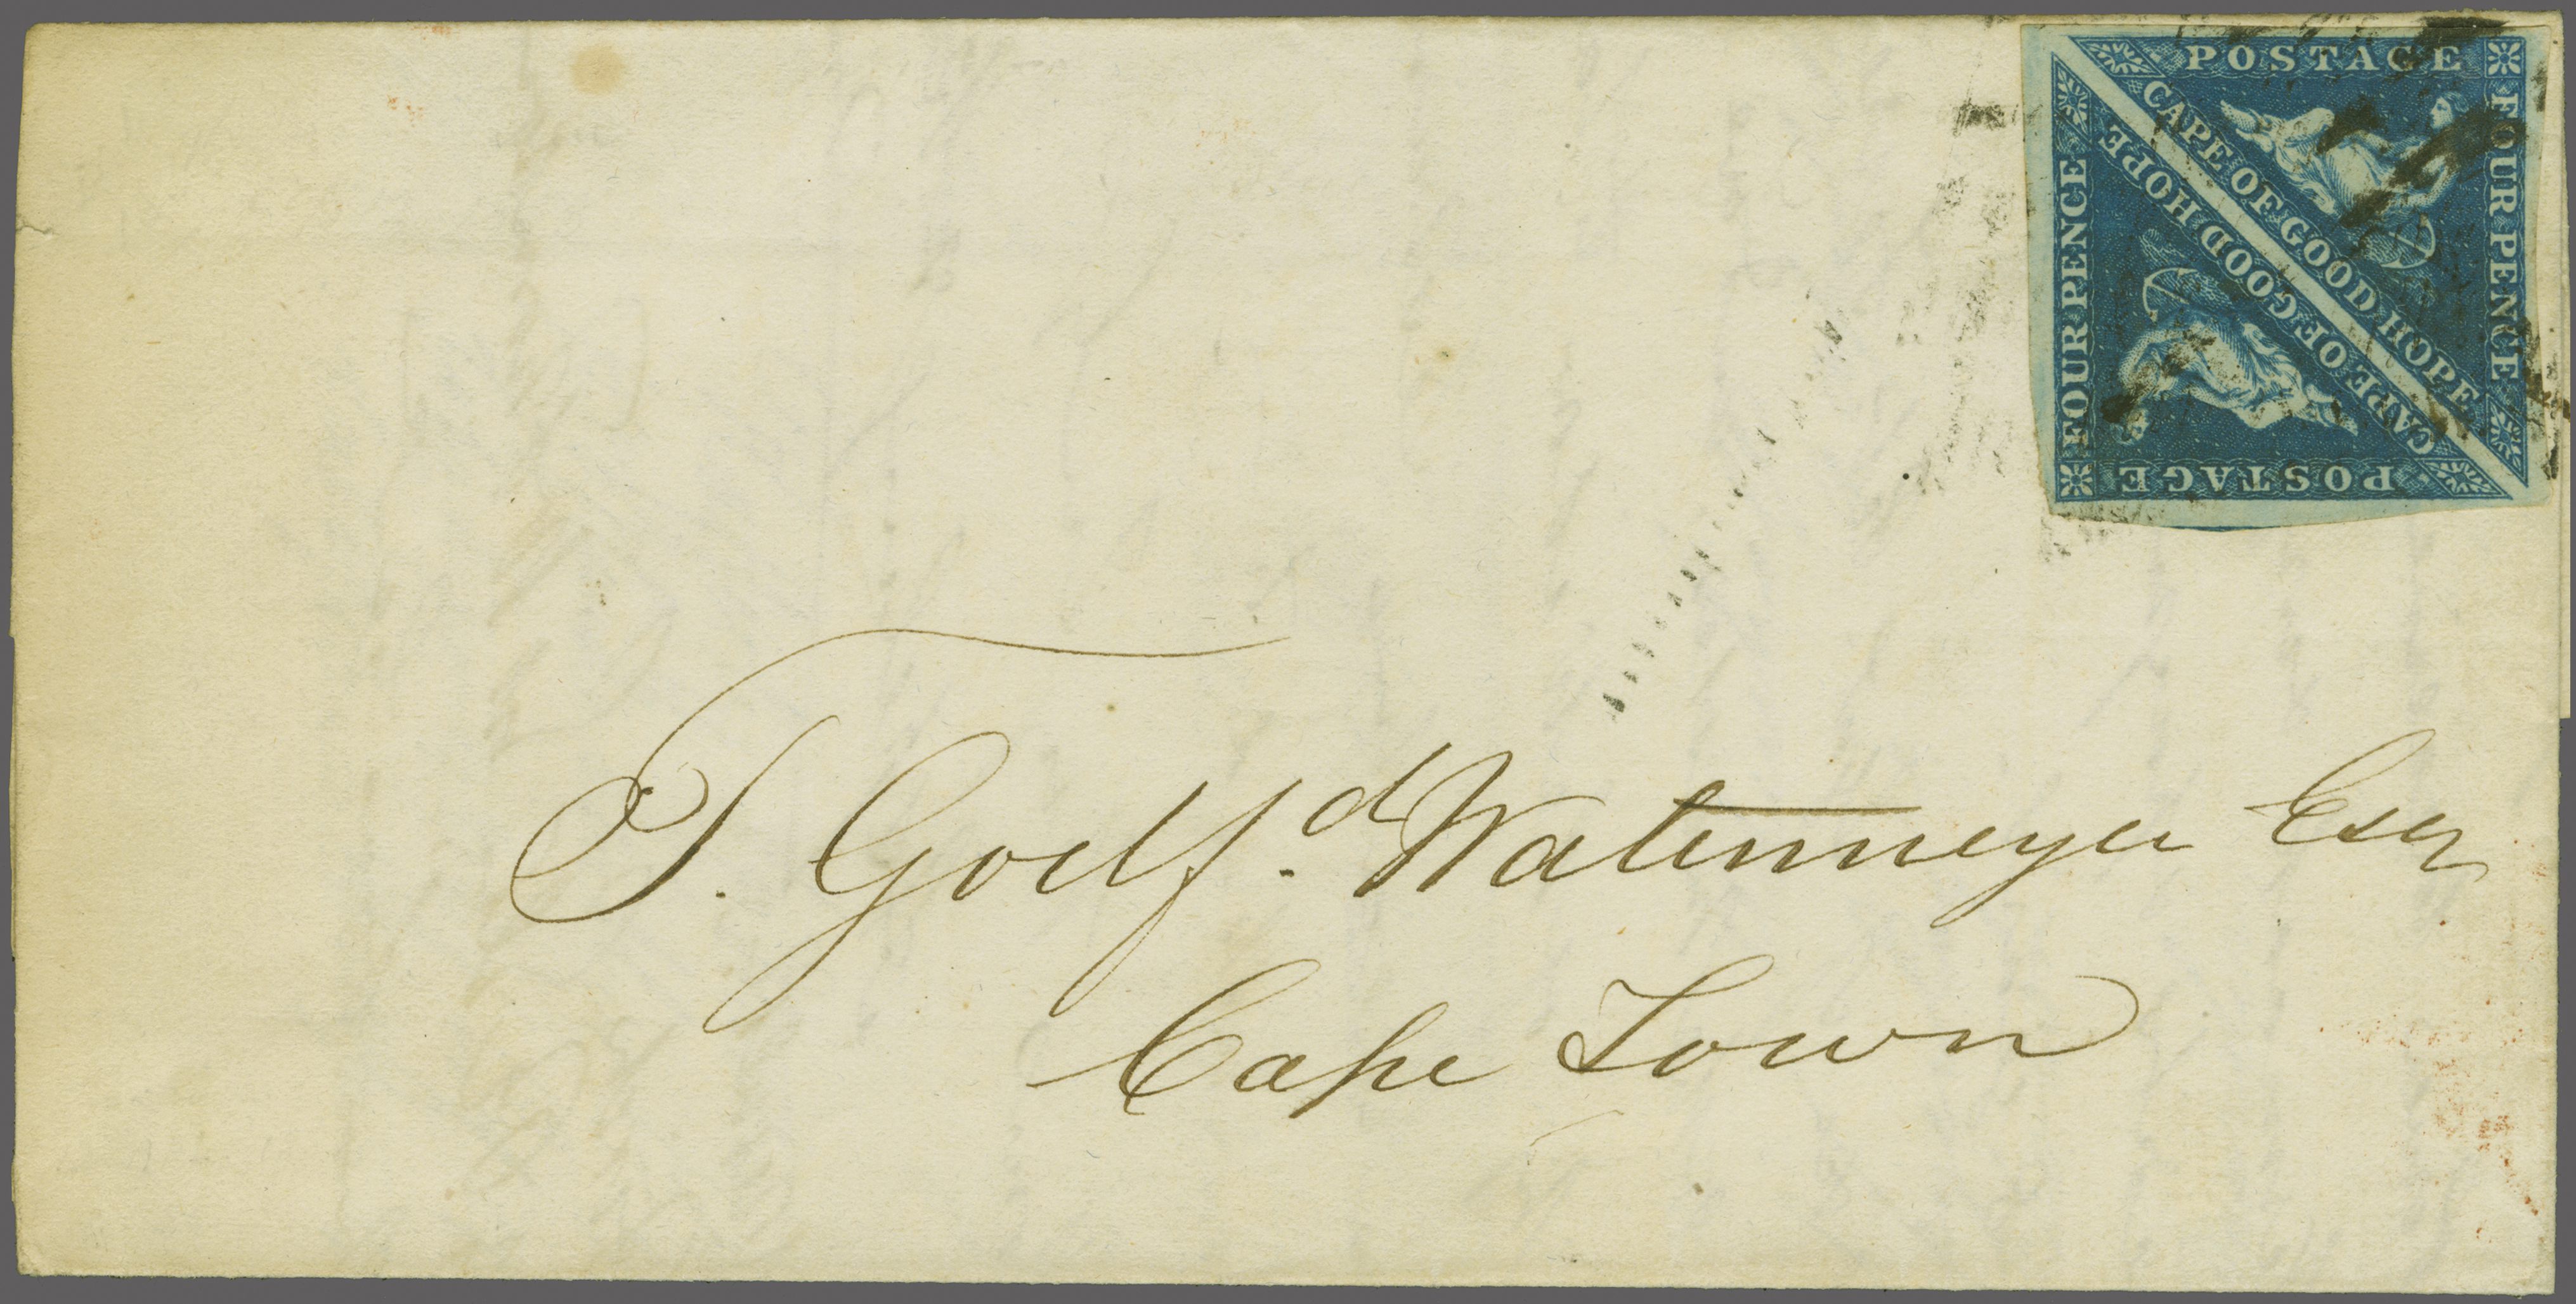 POSTAGE
FOUR PENCE
CAPE OF GOOD HOPE
CAPE OF GOOD HOPE
FOUR PENCE
POSTAGE
T. Godf.d Watermeyer Esq
Cape Town